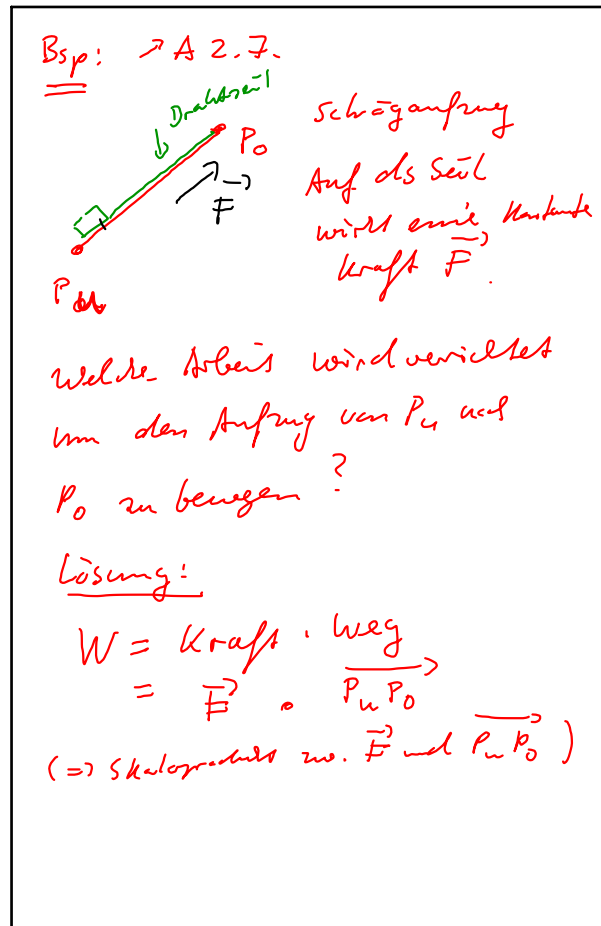 Bsp: → A 2.7.
Drahtseil
P₀
F
Pᵤ
Schrägaufzug
Auf das Seil
wirkt eine konstante
Kraft F.
Welche Arbeit wird verrichtet
um den Aufzug von Pᵤ nach
P₀ zu bewegen?
Lösung:
W = Kraft · Weg
= F⃗ · PᵤP₀
(=> Skalarprodukt zw. F⃗ und PᵤP₀)